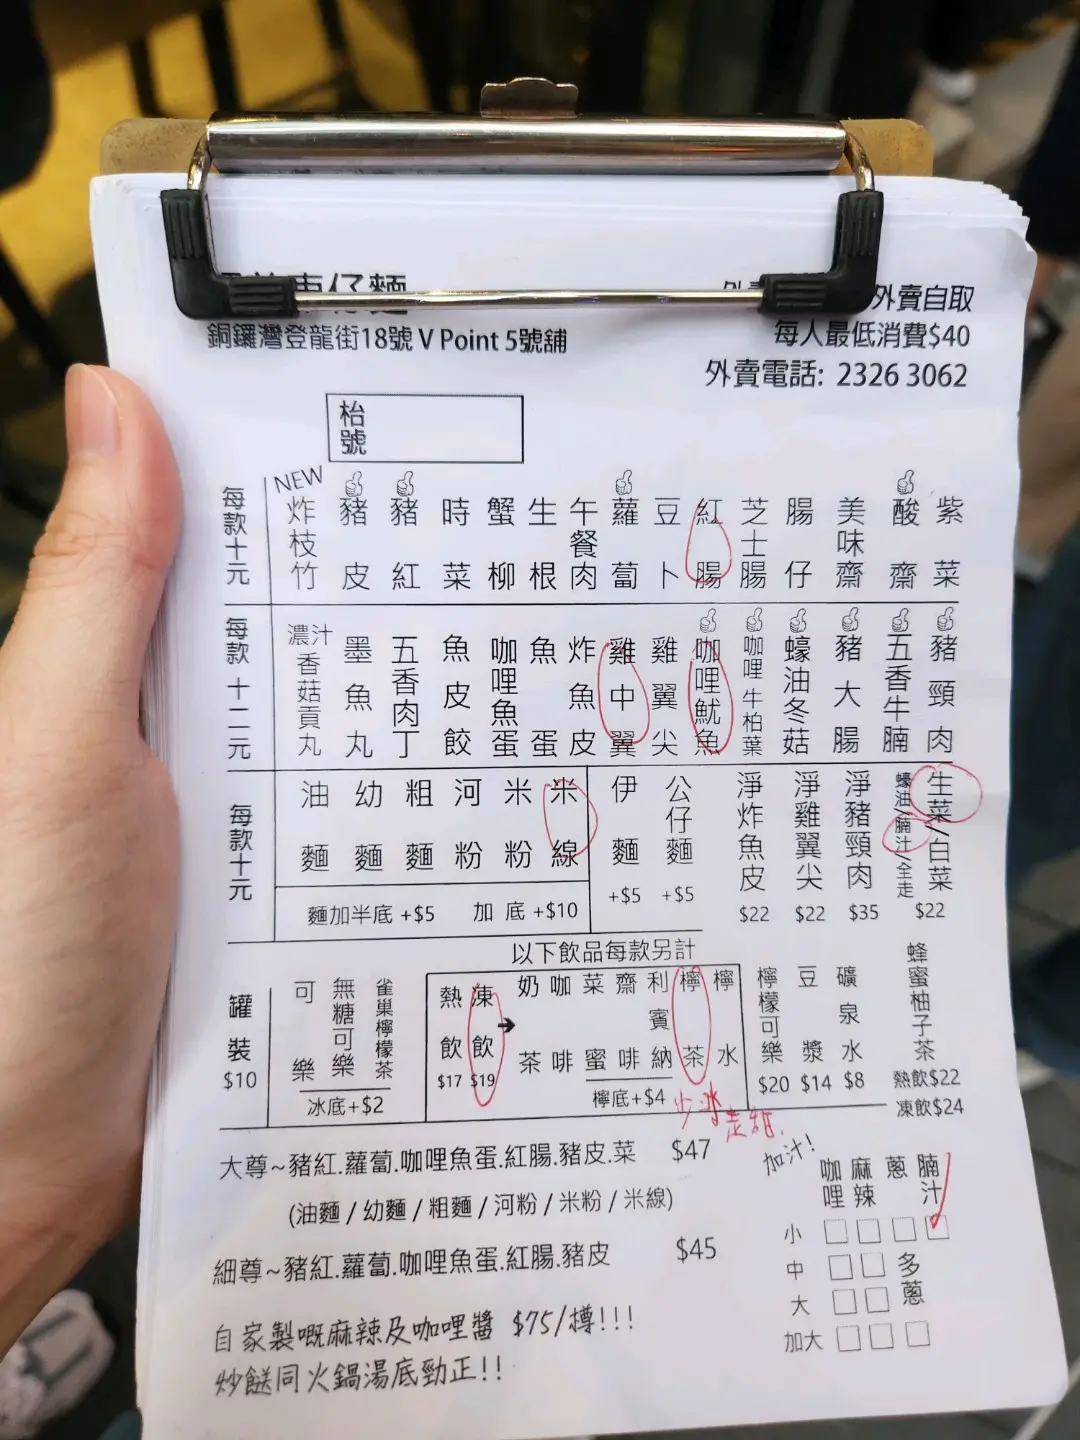 車仔麵
銅鑼灣登龍街18號 V Point 5號舖
外賣自取
每人最低消費$40
外賣電話: 2326 3062
枱號
每款十元
NEW
炸枝竹
豬皮
豬紅
時菜
蟹柳
生根
午餐肉
蘿蔔
豆卜
紅腸
芝士腸
腸仔
美味齋
酸齋
紫菜
每款十二元
濃汁香菇貢丸
墨魚丸
五香肉丁
魚皮餃
咖哩魚蛋
魚蛋
炸魚皮
雞中翼
雞翼尖
咖哩魷魚
咖哩牛柏葉
蠔油冬菇
豬大腸
五香牛腩
豬頸肉
每款十元
油麵
幼麵
粗麵
河粉
米粉
米線
麵加半底 +$5
加底 +$10
伊麵 +$5
公仔麵 +$5
淨炸魚皮 $22
淨雞翼尖 $22
淨豬頸肉 $35
蠔油/腩汁/全走
生菜/白菜 $22
以下飲品每款另計
罐裝 $10
可樂
無糖可樂
雀巢檸檬茶
冰底+$2
熱飲 $17
凍飲 $19
➔
奶茶
咖啡
菜蜜
齋啡
利賓納
檸茶
檸水
檸底+$4
少冰
走甜.
檸檬可樂 $20
豆漿 $14
礦泉水 $8
蜂蜜柚子茶
熱飲$22
凍飲$24
大尊~豬紅.蘿蔔.咖哩魚蛋.紅腸.豬皮.菜 $47
(油麵 / 幼麵 / 粗麵 / 河粉 / 米粉 / 米線)
細尊~豬紅.蘿蔔.咖哩魚蛋.紅腸.豬皮 $45
自家製嘅麻辣及咖哩醬 $75/樽!!!
炒餸同火鍋湯底勁正!!
加汁!
咖哩 麻辣 蔥 腩汁
小 □ □ □ □
中 □ □ 多蔥
大 □ □
加大 □ □ □